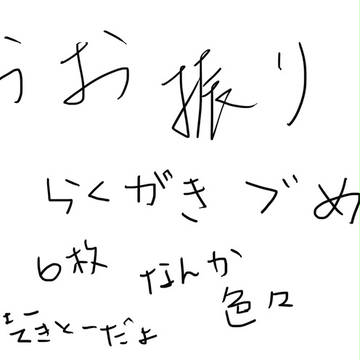 うお振り
らくがきづめ
6枚 なんか
色々
てきとーだよ